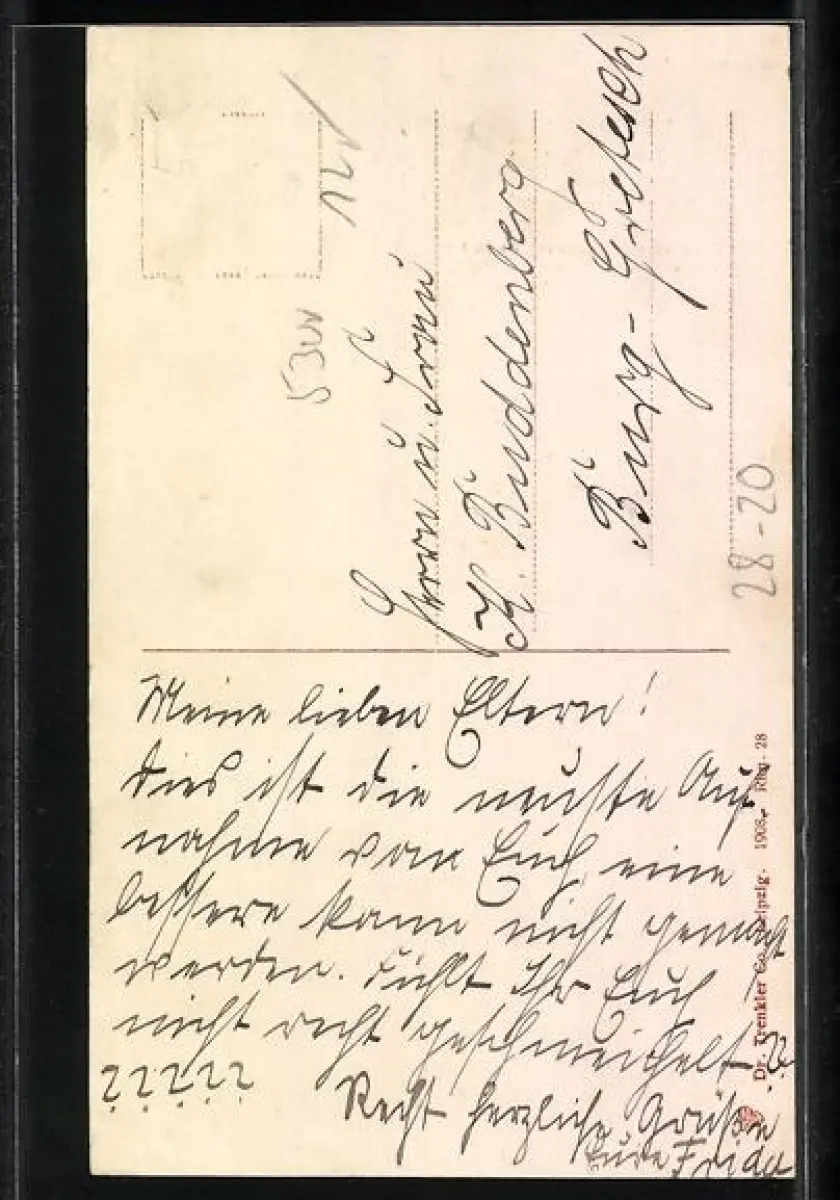 Meine lieben Eltern!
Dies ist die neuste Auf-
nahme von Euch, eine
bessere kann nicht gemacht
werden. Fühlt Ihr Euch
nicht recht geschmeichelt??
?????
Recht herzliche Grüße
Eure Frida
Herrn u. Frau
H. Buddenberg
Burg-Gretesch
28-20
Dr. Trenkler Co., Leipzig. 1908. Rbg. 28